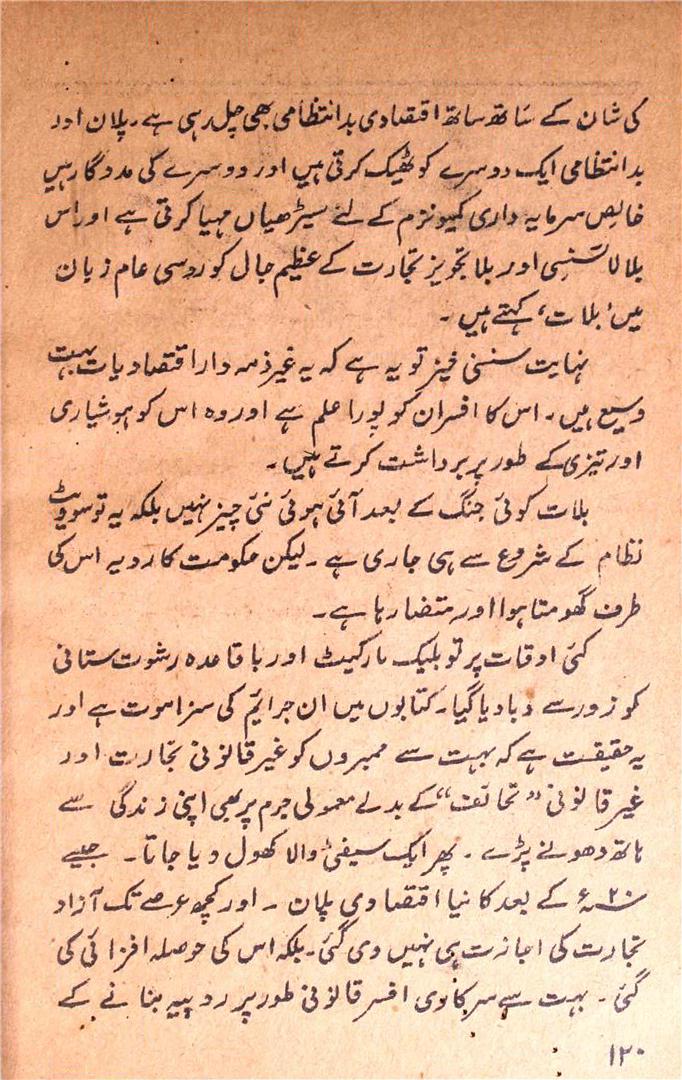 کی شان کے ساتھ ساتھ اقتصادی بدانتظامی بھی چل رہی ہے۔ پلان اور
بدانتظامی ایک دوسرے کو ٹھیک کرتی ہیں اور دوسرے کی مددگار ہیں
خالص سرمایہ داری کمیونزم کے لئے سیڑھیاں مہیا کرتی ہے اور اس
بلا لائسنسی اور بلا تجویز تجارت کے عظیم جال کو روسی عام زبان
میں 'بلات' کہتے ہیں۔
نہایت سنسنی خیز تو یہ ہے کہ یہ غیر ذمہ دار اقتصادیات بہت
وسیع ہیں۔ اس کا افسران کو پورا علم ہے اور وہ اس کو ہوشیاری
اور تیزی کے طور پر برداشت کرتے ہیں۔
بلات کوئی جنگ کے بعد آئی ہوئی نئی چیز نہیں بلکہ یہ تو سوویٹ
نظام کے شروع سے ہی جاری ہے۔ لیکن حکومت کا رویہ اس کی
طرف گھومتا ہوا اور متضاد رہا ہے۔
کئی اوقات پر تو بلیک مارکیٹ اور باقاعدہ رشوت ستانی
کو زور سے دبا دیا گیا۔ کتابوں میں ان جرائم کی سزا موت ہے اور
یہ حقیقت ہے کہ بہت سے ممبروں کو غیر قانونی تجارت اور
غیر قانونی "تحائف" کے بدلے معمولی جرم پر بھی اپنی زندگی سے
ہاتھ دھونے پڑے۔ پھر ایک سیفٹی والا کھول دیا جاتا۔ جیسے
۲۰ء کے بعد کا نیا اقتصادی پلان۔ اور کچھ عرصے تک آزاد
تجارت کی اجازت ہی نہیں دی گئی۔ بلکہ اس کی حوصلہ افزائی کی
گئی۔ بہت سے سرکاری افسر قانونی طور پر روپیہ بنانے کے
۱۲۰